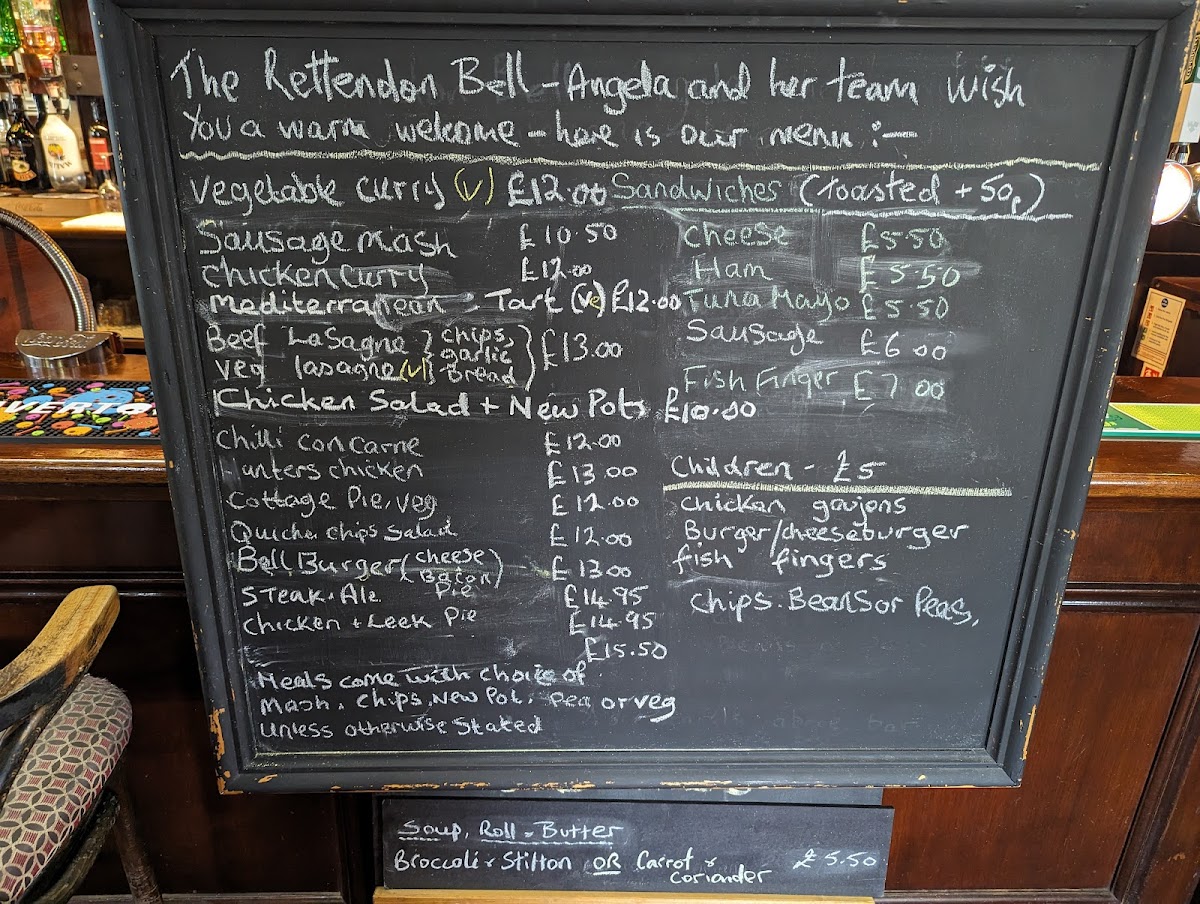 The Rettendon Bell - Angela and her team wish
You a warm welcome - here is our menu :-
Vegetable Curry (V) £12.00
Sausage Mash £10.50
Chicken Curry £12.00
Mediterranean Tart (Ve) £12.00
Beef Lasagne } chips, garlic bread £13.00
Veg lasagne (V)
Chicken Salad + New Pots £10.00
Chilli Con Carne £12.00
Hunters chicken £13.00
Cottage Pie, veg £12.00
Quiche chips Salad £12.00
Bell Burger (cheese Bacon) £13.00
Steak + Ale Pie £14.95
Chicken + Leek Pie £14.95
£15.50
Meals come with choice of
Mash, Chips, New Pot, pea or veg
Unless otherwise Stated
Sandwiches (toasted + 50p)
Cheese £5.50
Ham £5.50
Tuna Mayo £5.50
Sausage £6.00
Fish Finger £7.00
Children - £5
Chicken goujons
Burger/cheeseburger
fish fingers
Chips. Beans or Peas,
Soup, Roll + Butter
Broccoli + Stilton OR Carrot + coriander £5.50